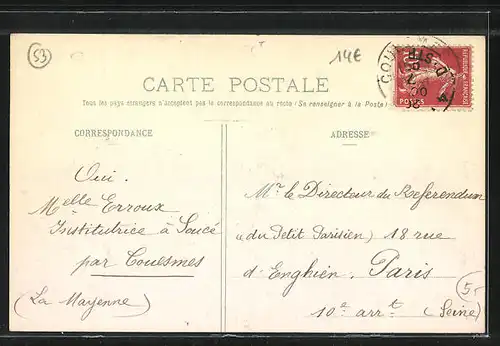 53
14€
CARTE POSTALE
Tous les pays étrangers n'acceptent pas la correspondance au recto (Se renseigner à la Poste)
CORRESPONDANCE
ADRESSE
Oui.
Melle Erroux
Institutrice à Soucé
par Couesmes
(La Mayenne)
Mr le Directeur du Referendum
"du Petit Parisien) 18 rue
d'Enghien. Paris
10e arrt (Seine)
5.-
10
POSTES